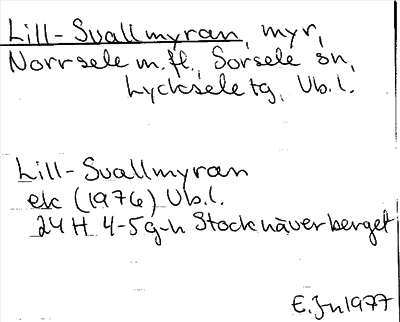 Lill-Svallmyran, myr,
Norrsele m.fl., Sorsele sn,
Lycksele tg, Vb.l.
Lill-Svallmyran
ek (1976) Vb.l.
24H 4-5g-h Stocknäverberget
E.Jn 1977